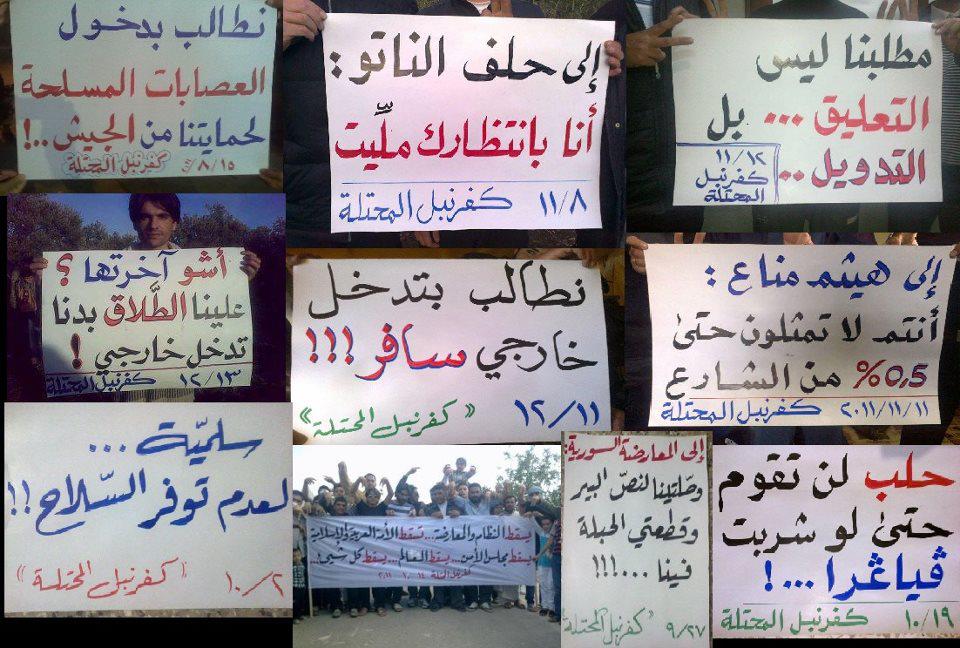 نطالب بدخول
العصابات المسلحة
لحمايتنا من الجيش..!
كفرنبل المحتلة ٨/١٥
إلى حلف الناتو:
أنا بانتظارك ملّيت
١١/٨ كفرنبل المحتلة
مطلبنا ليس
التعليق ... بل
التدويل ..
١١/١٢
كفرنبل
المحتلة
أشو آخرتها ؟
علينا الطّلاق بدنا
تدخل خارجي !
١٢/١٣ كفرنبل المحتلة
نطالب بتدخل
خارجي سافر !!!
١٢/١١ «كفرنبل المحتلة»
إلى هيثم مناع :
أنتم لا تمثلون حتىٰ
%٥,٥ من الشارع
٢٠١١/١١/١١ كفرنبل المحتلة
سلميّة ...
لعدم توفر السّلاح !!
١٠/٢ «كفرنبل المحتلة»
يسقط النظام والمعارضة... تسقط الأمة العربية والإسلامية
يسقط مجلس الأمن... يسقط العالم... يسقط كل شيء!
كفرنبل المحتلة ١٤ . ١٠ . ٢٠١١
إلى المعارضة السورية:
وصّلتينا لنصّ البير
وقطعتي الحبلة
فينا ...!!!
٩/٢٧ "كفرنبل المحتلة"
حلب لن تقوم
حتىٰ لو شربت
ڤياغرا ...!
١٠/١٩ كفرنبل المحتلة